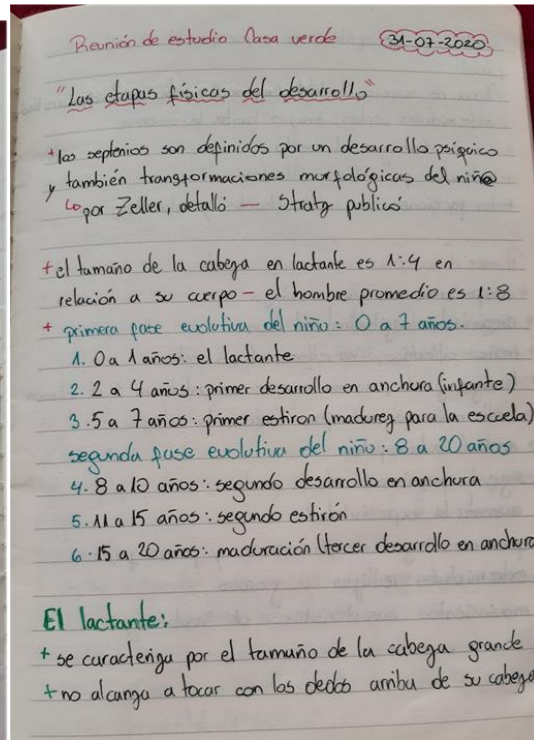 Reunión de estudio Casa verde 31-07-2020
"Las etapas físicas del desarrollo"
+ los septenios son definidos por un desarrollo psíquico
y también transformaciones morfológicas del niñ@
↳ por Zeller, detalló — Stratz publicó
+ el tamaño de la cabeza en lactante es 1:4 en
relación a su cuerpo - el hombre promedio es 1:8
+ primera fase evolutiva del niño: 0 a 7 años.
1. 0 a 1 años: el lactante
2. 2 a 4 años: primer desarrollo en anchura (infante)
3. 5 a 7 años: primer estiron (madurez para la escuela)
segunda fase evolutiva del niño: 8 a 20 años
4. 8 a 10 años: segundo desarrollo en anchura
5. 11 a 15 años: segundo estirón
6. 15 a 20 años: maduración (tercer desarrollo en anchura
El lactante:
+ se caracteriza por el tamaño de la cabeza grande
+ no alcanza a tocar con los dedos arriba de su cabeza